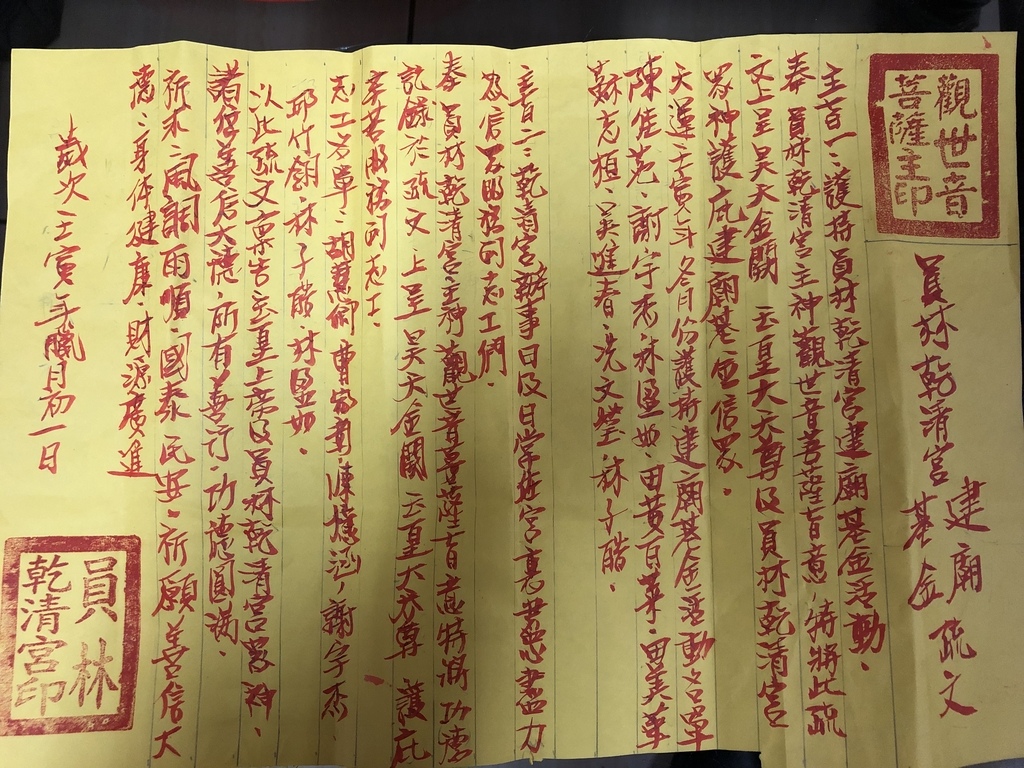 觀世音
菩薩主印
員林乾清宮 建廟 疏文
基金
主旨一：護持員林乾清宮建廟基金活動.
奉 員林乾清宮主神觀世音菩薩旨意,特將此疏
文上呈昊天金闕 玉皇大天尊及員林乾清宮
眾神護庇建廟基金信眾.
大運壬寅年 月份護持建廟基金活動名單
陳佳 謝宇 林 如.田黃百 .田美華
蘇志 .吳進春.洗文 .林子皓.
主旨二：乾清宮辦事日及日常在宮裏 盡力
為信眾服務的志工們.
奉 員林乾清宮主神觀世音菩薩旨意特將功德
記錄於疏文上呈昊天金闕 玉皇大天尊 護庇
辛苦服務的志工.
志工名單：胡慧 曹家 .陳 涵.謝宇
邱竹 .林子皓.林 如.
以此疏文稟告玉皇上帝及員林乾清宮眾神.
諸位善信大德.所有善行.功德圓滿.
祈求：風調雨順.國泰民安.祈願善信大
德：身体健康.財源廣進
歲次：壬寅年臘月初一日
員林
乾清宮印